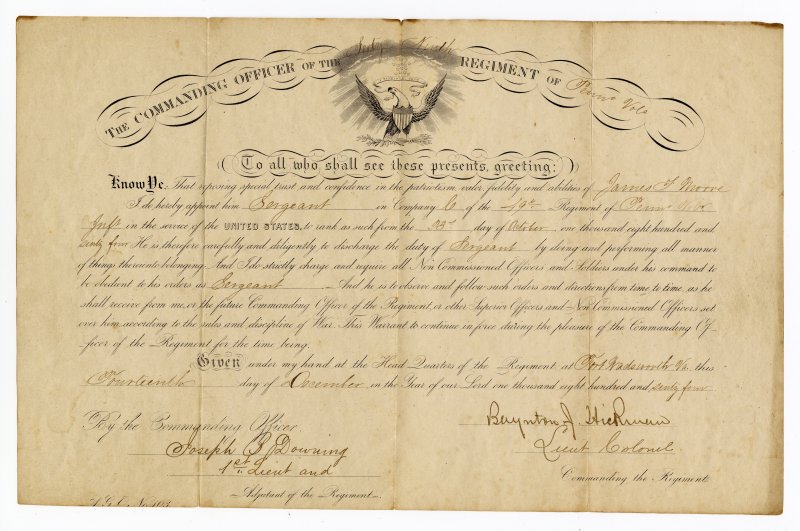 THE COMMANDING OFFICER OF THE Forty Ninth REGIMENT OF Penna Vols
To all who shall see these presents, greeting:
Know Ye, That reposing special trust and confidence in the patriotism, valor, fidelity and abilities of James F Moore
I do hereby appoint him Sergeant in Company C of the 49th Regiment of Penna Vols
Inft in the service of the UNITED STATES, to rank as such from the 22d day of October one thousand eight hundred and
sixty four He is therefore carefully and diligently to discharge the duty of Sergeant by doing and performing all manner
of things thereunto belonging. And I do strictly charge and require all Non Commissioned Officers and Soldiers under his command to
be obedient to his orders as Sergeant And he is to observe and follow such orders and directions from time to time, as he
shall receive from me, or the future Commanding Officer of the Regiment, or other Superior Officers and Non Commissioned Officers set
over him, according to the rules and discipline of War. This Warrant to continue in force during the pleasure of the Commanding Of-
ficer of the Regiment for the time being.
Given under my hand at the Head Quarters of the Regiment at Fort Wadsworth Va. this
Fourteenth day of December, in the Year of our Lord one thousand eight hundred and sixty four
By the Commanding Officer.
Baynton J. Hickman
Joseph B Downing
Lieut Colonel
1st Lieut and
Commanding the Regiment.
Adjutant of the Regiment.
A.G.O. No. 103